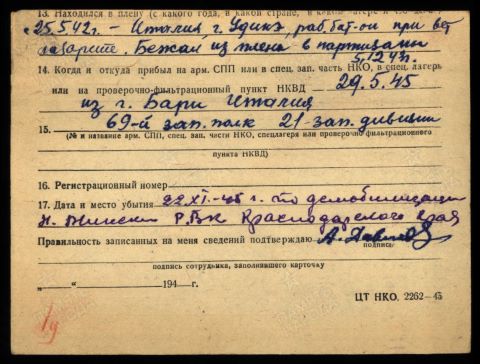 13. Находился в плену (с какого года, в какой стране, в каком лагере
25.5.42г. – Италия, г. Удинэ, раб. бат-он при вет
лазарите. Бежал из плена в партизаны
14. Когда и откуда прибыл на арм. СПП или в спец. зап. часть НКО, в спец. лагерь
или на проверочно-фильтрационный пункт НКВД 29.5.45
из г. Бари Италия
15. 69-й зап. полк 21-зап. дивизии
(№ и название арм. СПП, спец. части НКО, спецлагеря или проверочно фильтрационного
пункта НКВД)
16. Регистрационный номер
17. Дата и место убытия 22.XI-45 г. по демобилизации
РВК Краснодарского края
Правильность записанных на меня сведений подтверждаю
подпись
подпись сотрудника, заполнившего карточку
„ “ 194 г.
ЦТ НКО. 2262—45